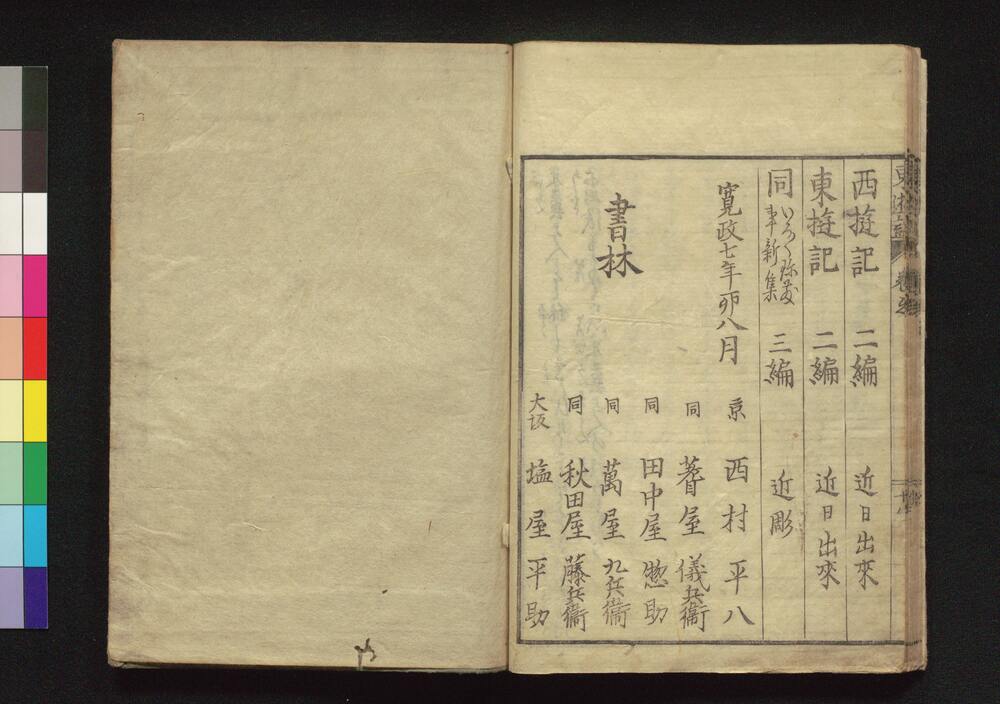 西遊記 二編 近日出來
東遊記 二編 近日出來
同 三編 近彫
寛政七年卯八月
書林
京 西村平八
同 蓍屋儀兵衞
同 田中屋惣助
同 萬屋九兵衞
同 秋田屋藤兵衞
大坂 塩屋平助